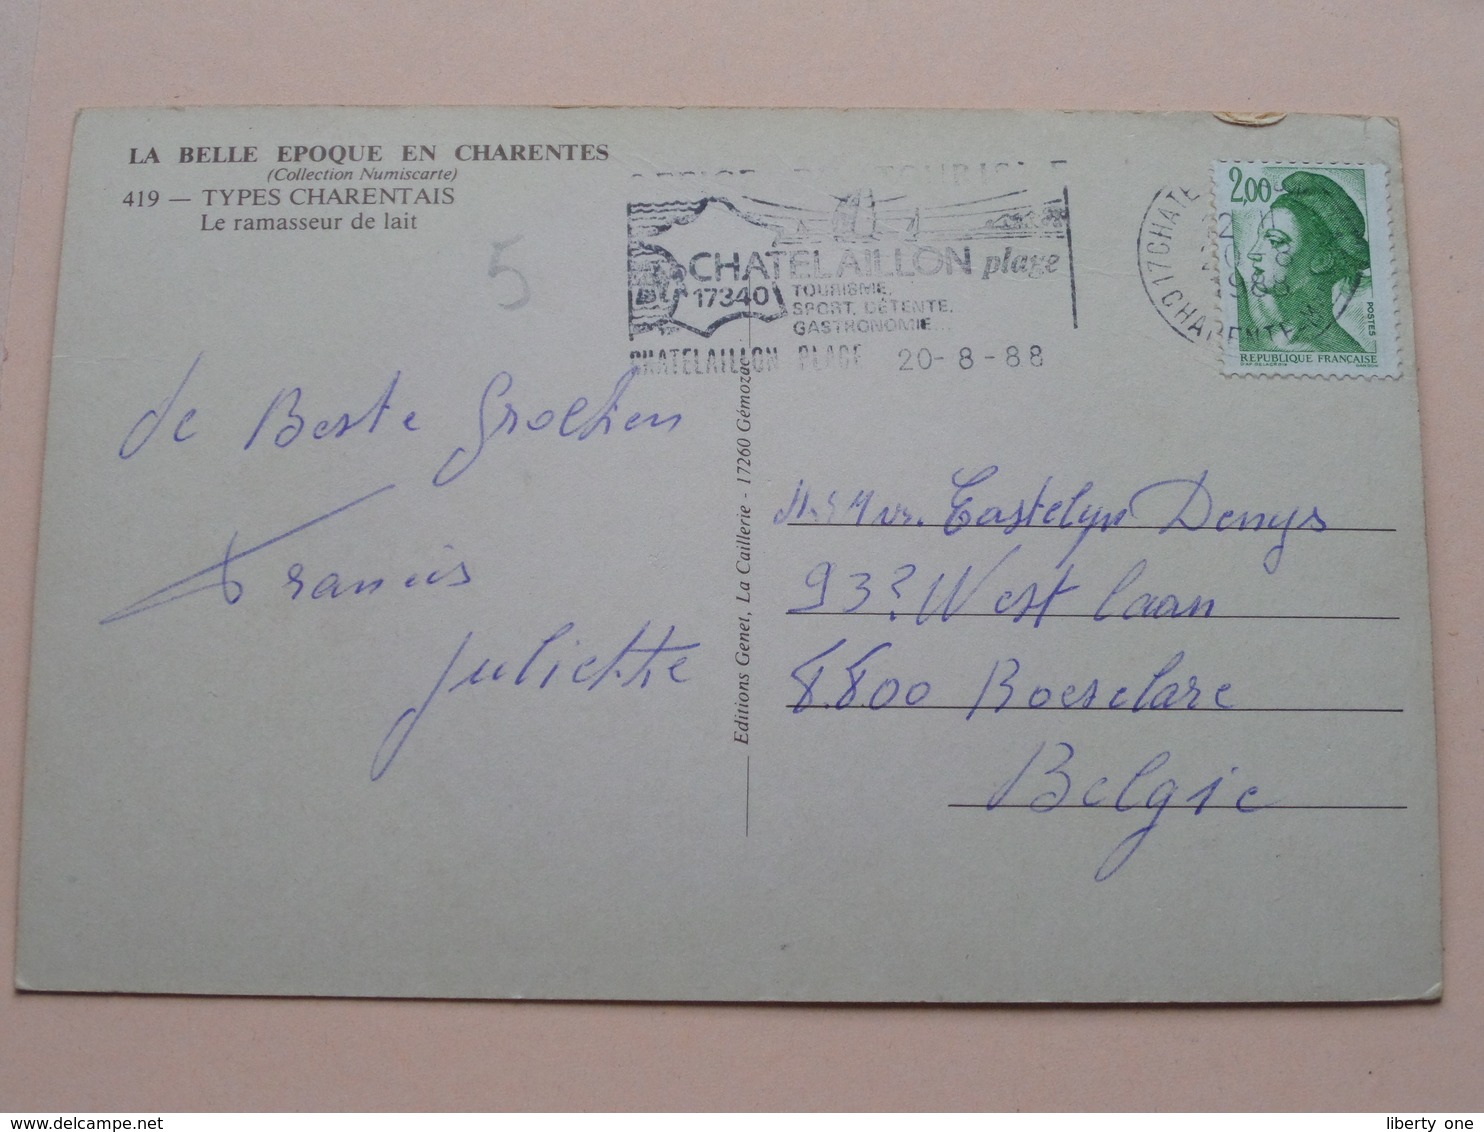 LA BELLE EPOQUE EN CHARENTES
(Collection Numiscarte)
419 — TYPES CHARENTAIS
Le ramasseur de lait
5
CHATELAILLON plage
17340
TOURISME,
SPORT, DÉTENTE,
GASTRONOMIE...
CHATELAILLON PLAGE 20-8-88
17 CHATE
1988
CHARENTE-M
2,00
POSTES
REPUBLIQUE FRANÇAISE
de Beste Groetten
Francis
Juliette
Editions Genet, La Caillerie - 17260 Gémozac
Castelyn Denys
93? West laan
8.800 Roeselare
Belgie
liberty one